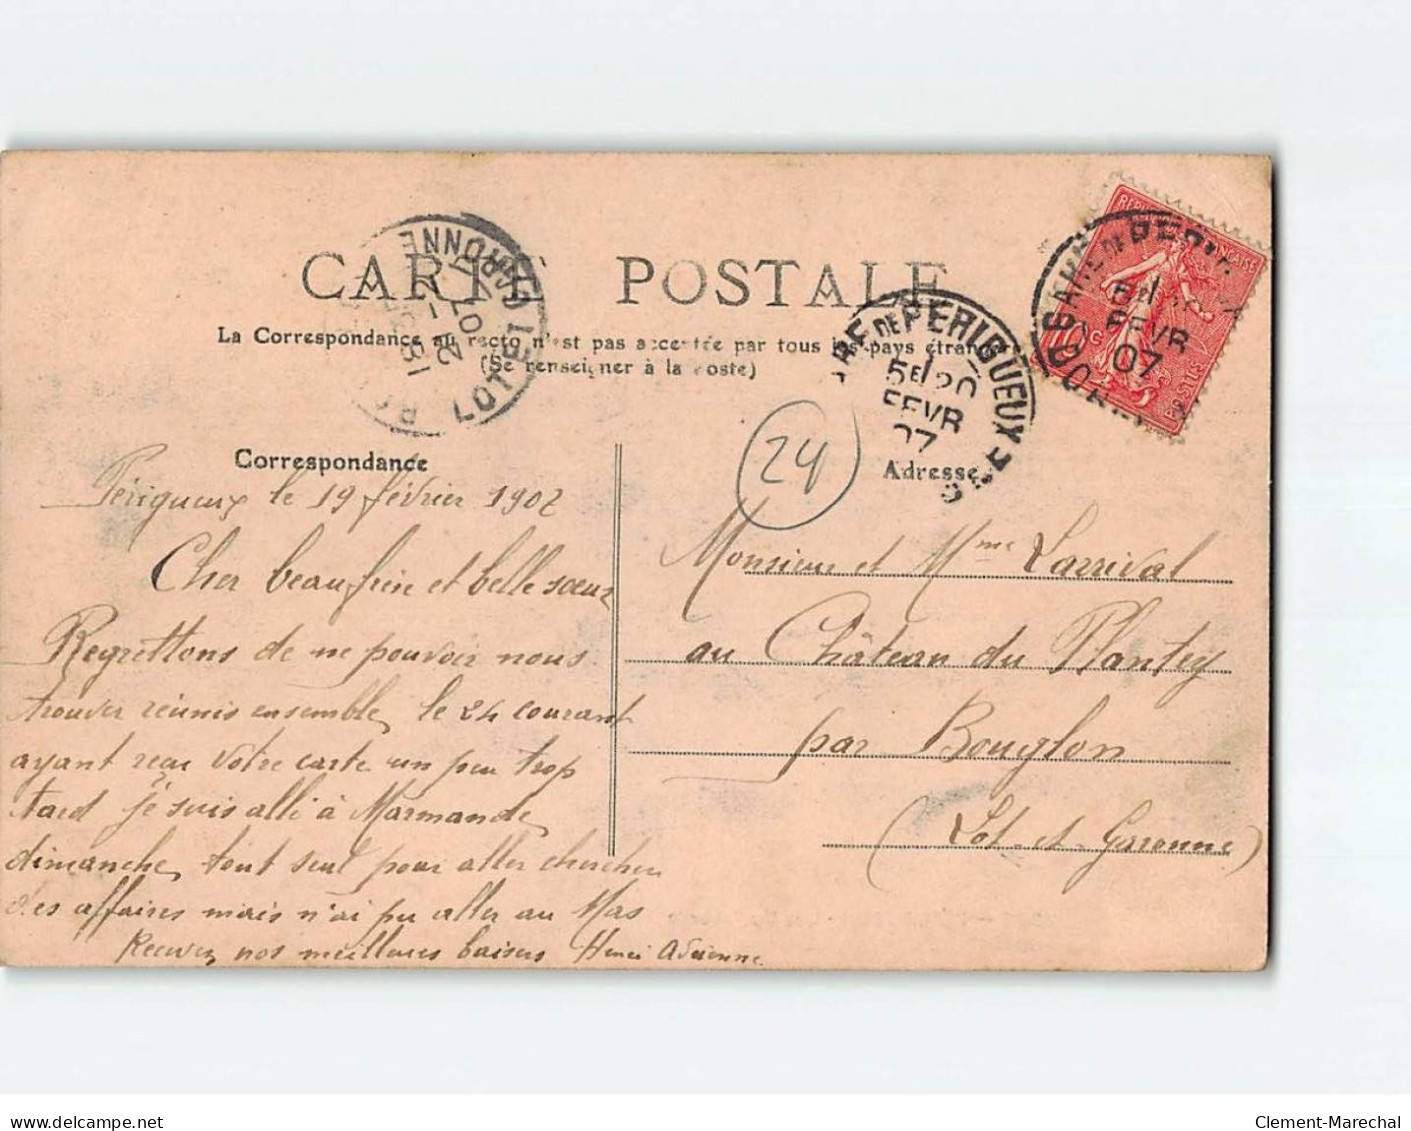 CARTE POSTALE
La Correspondance au recto n'est pas acceptée par tous les pays étrangers
(Se renseigner à la Poste)
LOT ET GARONNE
GARE DE PERIGUEUX
5E 20
FEVR
07
REPUBLIQUE FRANÇAISE
POSTES
GARE DE PERIGUEUX
5E 20
FEVR
07
24
Correspondance
Adresse
Périgueux le 19 février 1907
Cher beaufrère et belle sœur
Regrettons de ne pouvoir nous
trouver réunis ensemble le 24 courant
ayant reçu votre carte un peu trop
tard je suis allé à Marmande
dimanche tout seul pour aller chercher
des affaires mais n'ai pu aller au Mas
Recevez nos meilleurs baisers Henri Adrienne
Monsieur et Mme Larrival
au Château du Plantey
par Bouglon
(Lot-et-Garonne)
Clement-Marechal
www.delcampe.net